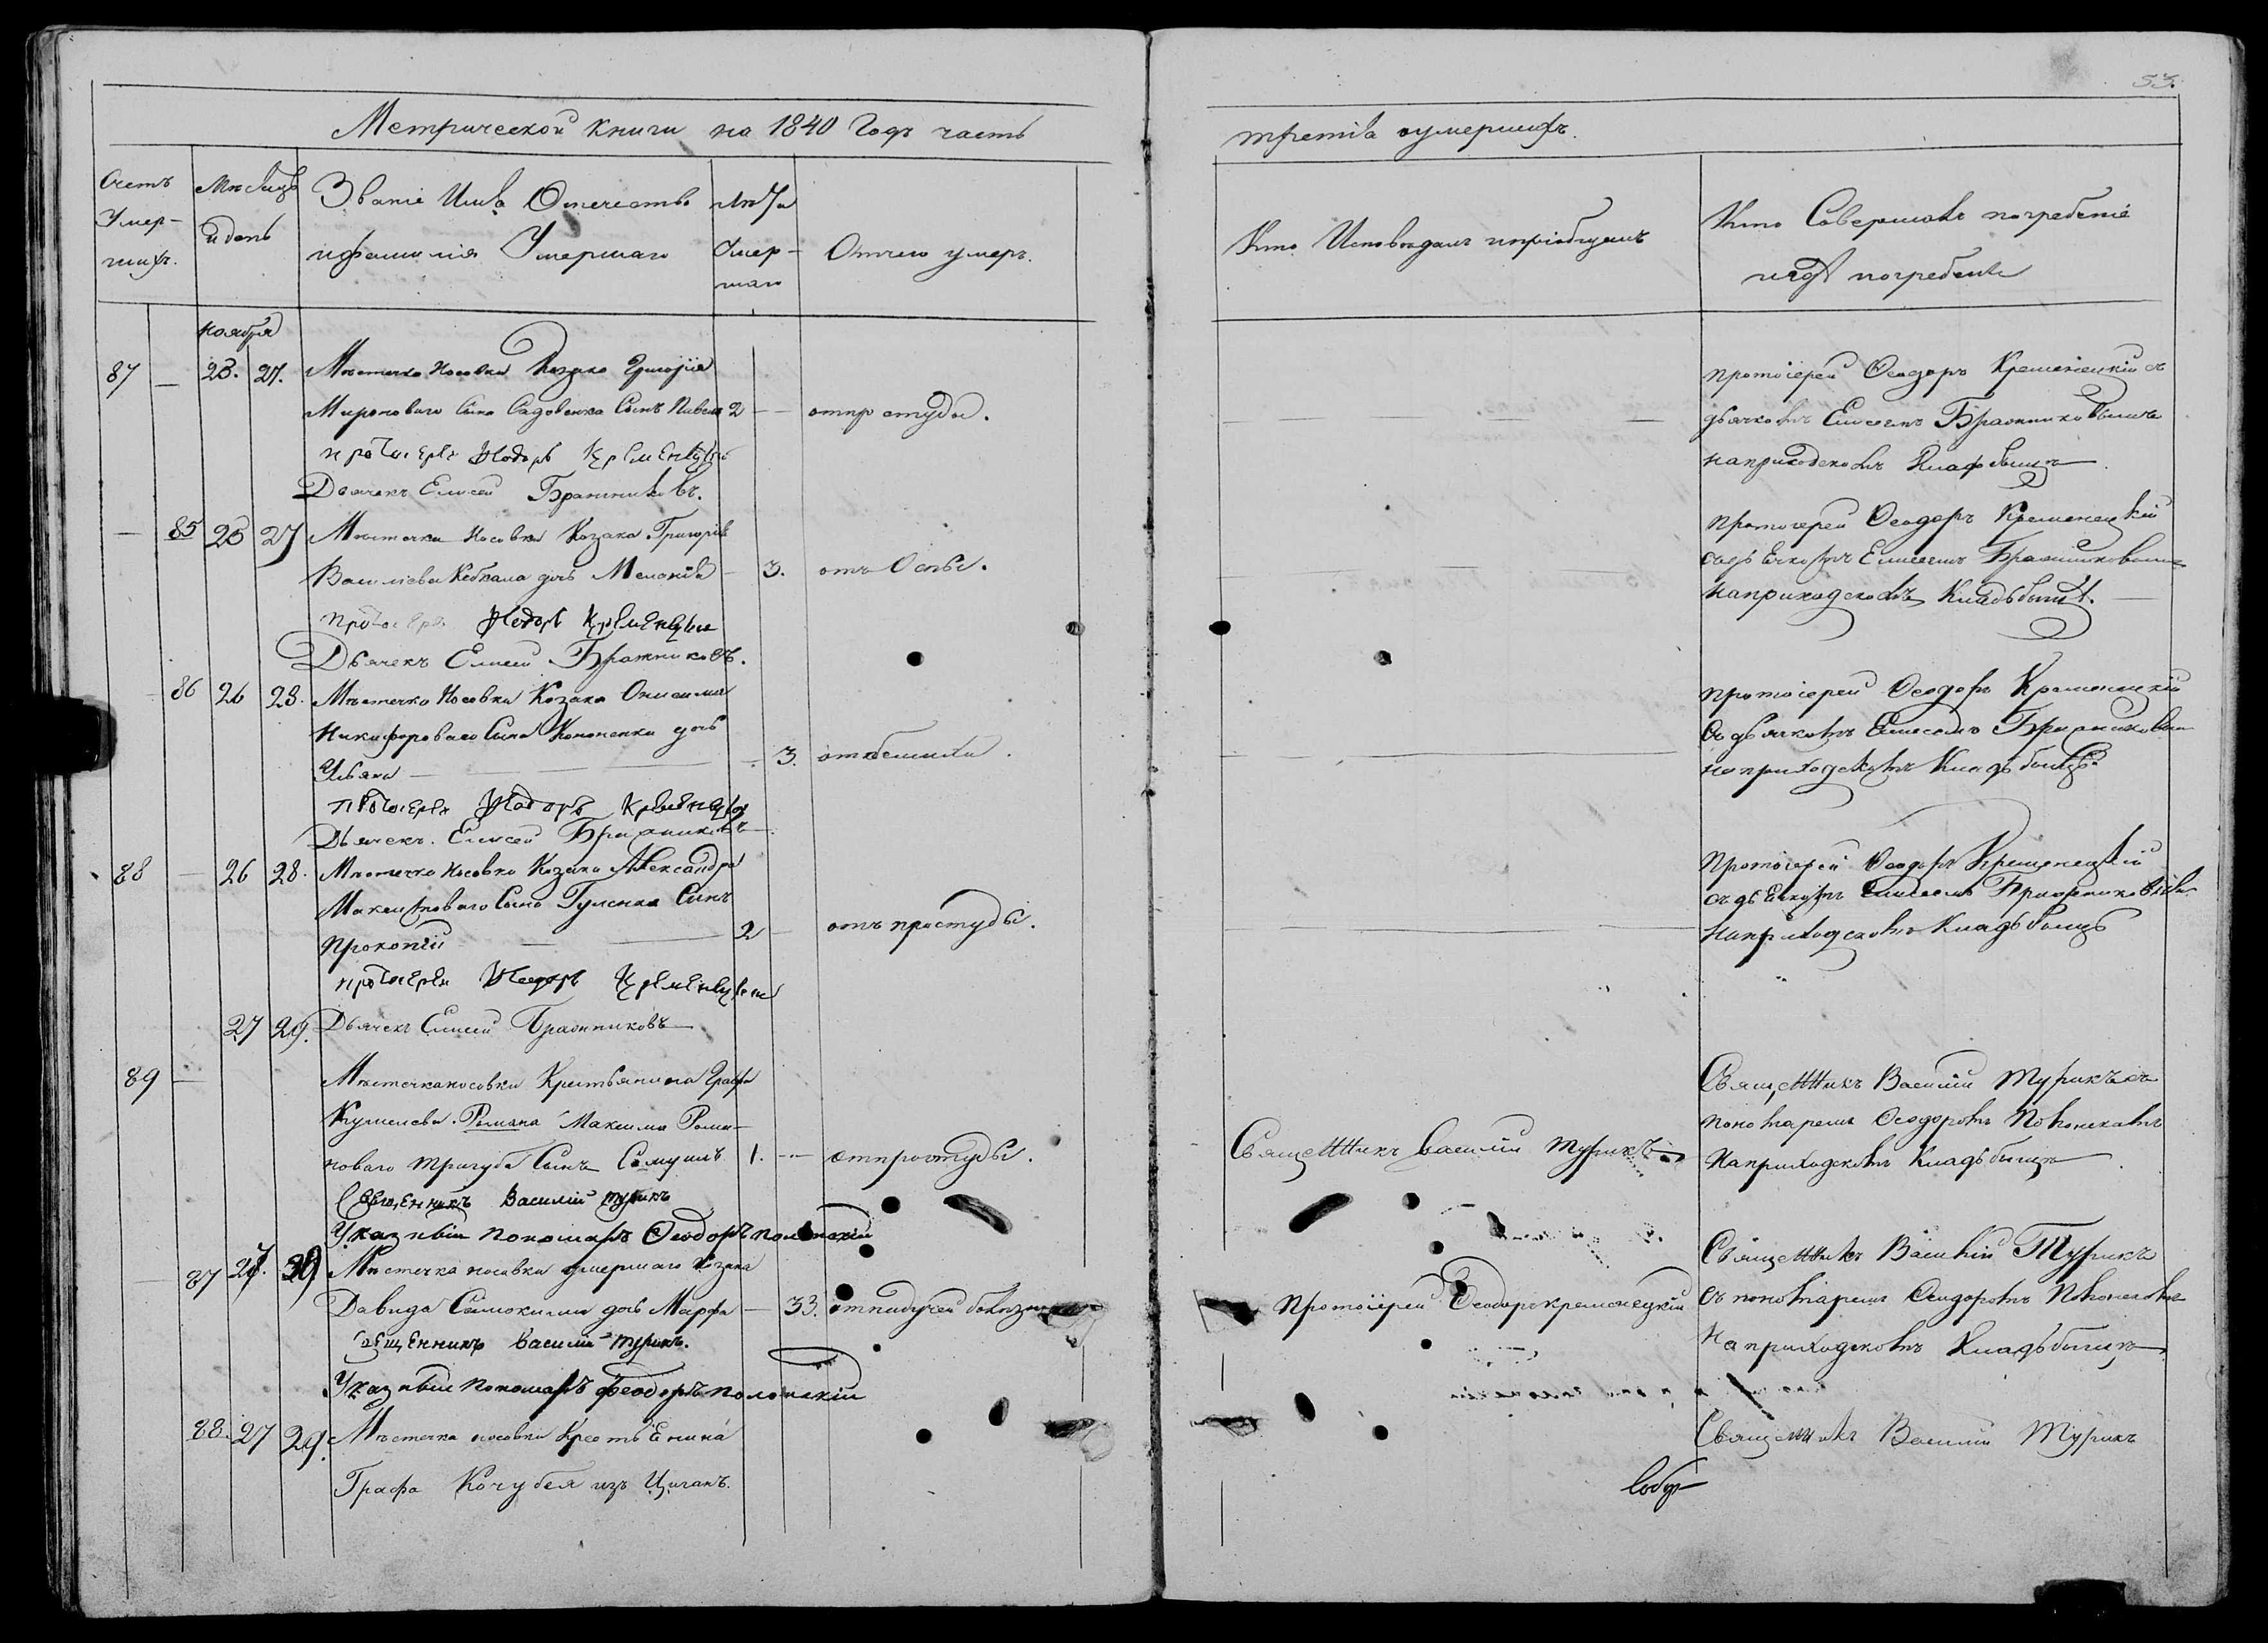 53.
Метрической книги на 1840 Годъ часть
третія оумершихъ.
Счетъ Умер-шихъ.
Мѣсяцъ и день
Званіе Имя Отечество и фамилія Умершаго
Лѣта Умер-шаго
Отчего умеръ.
Кто Исповѣдалъ и пріобщалъ
Кто Совершалъ погребеніе и гдѣ погребены
ноября
87 — 23. 27. Мѣстечка Носовки Козака Григорія
Мироноваго Сына Садовенка Сынъ Павелъ 2 — — отпростуды.
протоіерей Феодоръ Кременецкій
Дьячекъ Елисей Бражниковъ.
протоіерей Феодоръ Кременецкій съ
дьячкомъ Елисеемъ Бражниковымъ
наприходскомъ Кладбищѣ
— 85 25 27 Мѣстечка Носовки Козака Григорія
Василіева Кебкала дочь Меланія — 3. отъ Оспы.
протоіерей Феодоръ Кременецкій
Дьячекъ Елисей Бражниковъ.
протоіерей Феодоръ Кременецкій
съдьячкомъ Елисеемъ Бражниковымъ
наприходскомъ Кладьбищѣ.
86 26 28. Мѣстечка Носовки Козака Онисима
Никифороваго Сына Кононенка дочь
Ульяна — 3.
протоіерей Феодоръ Кременецкій
Дьячекъ Елисей Бражниковъ
протоіерей Феодоръ Кременецкій
Съ дьячкомъ Елисеемъ Бражниковым
наприходскомъ Кладьбищѣ.
88 — 26 28. Мѣстечка Носовки Козака Александра
Сына Сынъ
Прокопій — 2 — отъ простуды.
протоіерей Феодоръ Кременецкій
Дьячекъ Елисей Бражниковъ
Протоіерей Феодоръ Кременецкій
съ дьячкомъ Елисеемъ Бражниковымъ
наприходскомъ Кладьбищѣ
27 29.
89 — Мѣстечка носовки Крестьянина Графа
Кушелева. Романа Максима Рома-
новаго Тригуба Сынъ Самуилъ 1. — отпростуды.
Священникъ Василій Турикъ
Указный пономарь Феодоръ Полонскій
Священникъ Василій Турикъ
Священникъ Василій Турикъ съ
пономаремъ Феодоромъ Полонскимъ
Наприходскомъ Кладьбищѣ
87 27. 29 Мѣстечка носовки умершаго Козака
Давида дочь Марфа — 33.
Священникъ Василій Турикъ.
Указный Пономарь Феодоръ Полонскій
Протоіерей Феодоръ кременецкій
Священникъ Василій Турикъ
съ пономаремъ Феодоромъ Полонскимъ
На приходскомъ Кладьбищѣ
88. 27 29. Мѣстечка носовки Крестьянина
Графа Кочубея изъ Циганъ.
Священникъ Василій Турикъ